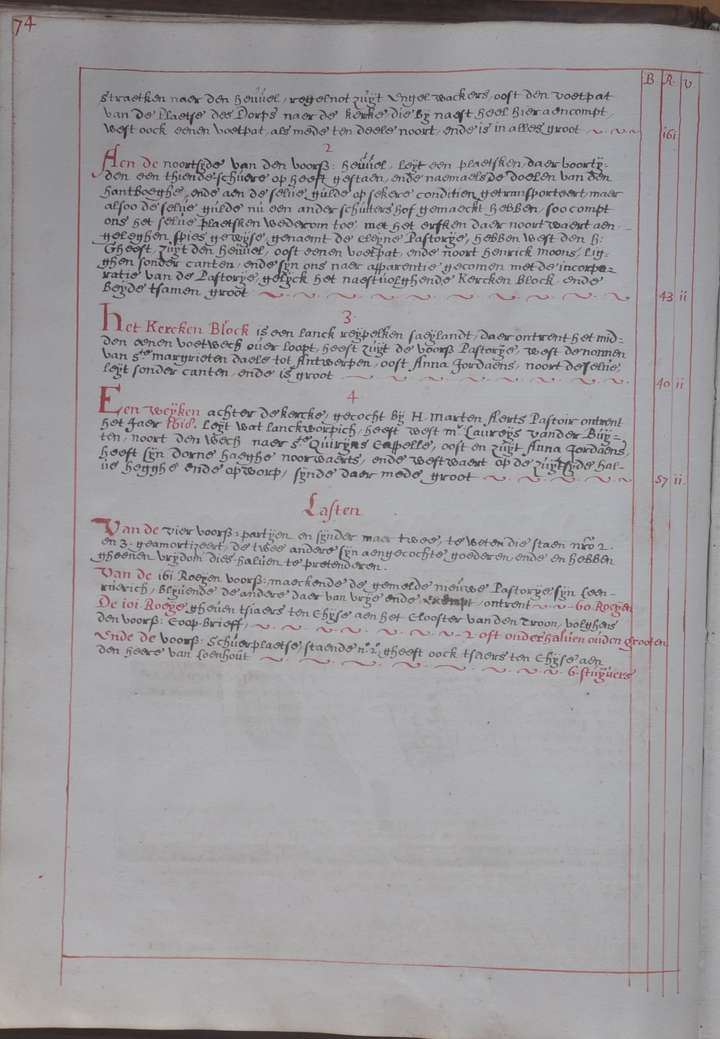 74
B R V
straetken naer den heuvel, regelnot zuyt Engel wackers, oost den voetpat
van de Plaetse des Dorps naer de kerke die by naest heel hier aencompt,
west oock eenen voetpat, als mede ten deele noort, ende is in alles groot 161
2
Aen de noortsyde van den voorß: heuvel, leyt een plaetsken, daer voorty-
den een thiende schuere op heeft gestaen, ende naemaels de doelen van den
hantboeghe, ende aen de selve gulde op sekere conditien getransporteert, maer
alsoo de selve gulde nu een ander schutters hof gemaeckt hebben, soo compt
ons het selve plaetsken wederom toe met het erfken daer noortwaert aen
geleghen, spies gewyse, genaemt de cleyne Pastorye, hebben west den H:
Gheest, zuyt den heuvel, oost eenen voetpat, ende noort Henrick moons, lig-
ghen sonder canten, ende syn ons naer apparentie gecomen met de incorpo-
ratie van de Pastorye, gelyck het naestvolghende Kercken Block, ende
beyde tsamen groot 43 ii
3.
Het Kercken Block is een lanck reypelken saeylandt, daer ontrent het mid-
den eenen voetwech over loopt, heeft zuyt de voorß Pastorye, west de nonnen
van Ste margrieten daele tot Antwerpen, oost Anna Jordaens, noort de selve,
leyt sonder canten, ende is groot 40 ii
4
Een weyken achter de kercke, gecocht by H. Marten Aerts Pastoir ontrent
het Jaer leyt wat lanckworpich, heeft west Mr Laureys vander Buy-
ten, noort den wech naer Ste Quiryns Cappelle, oost en zuyt Anna Jordaens,
heeft syn dorne haeghe noorwaerts, ende westwaert op de zuytsyde hal-
ve hegghe ende opworp, synde daer mede groot 57 ii
Lasten
Van de vier voorß: partyen en synder maer twee, te weten die staen nro 2.
en 3. geamortizeert, de twee andere syn aengecochte goederen, ende en hebben
gheenen vrydom dies halven te pretenderen.
Van de 161 Roeyen voorß: maeckende de gemelde nieuwe Pastorye, syn leen-
ruerich, blyvende de andere daer van vrye ende exempt, ontrent 60 Roeyen
De 101 Roeye, gheven tsiaers ten Chyse aen het Clooster van den Troon, volghens
den voorß: Coop-Brieff, 2 oft onderhalven ouden grooten
Ende de voorß: Schuerplaetse, staende nº 2, gheeft oock tsiaers ten Chyse aen
den heere van Loenhout 6 stuyvers